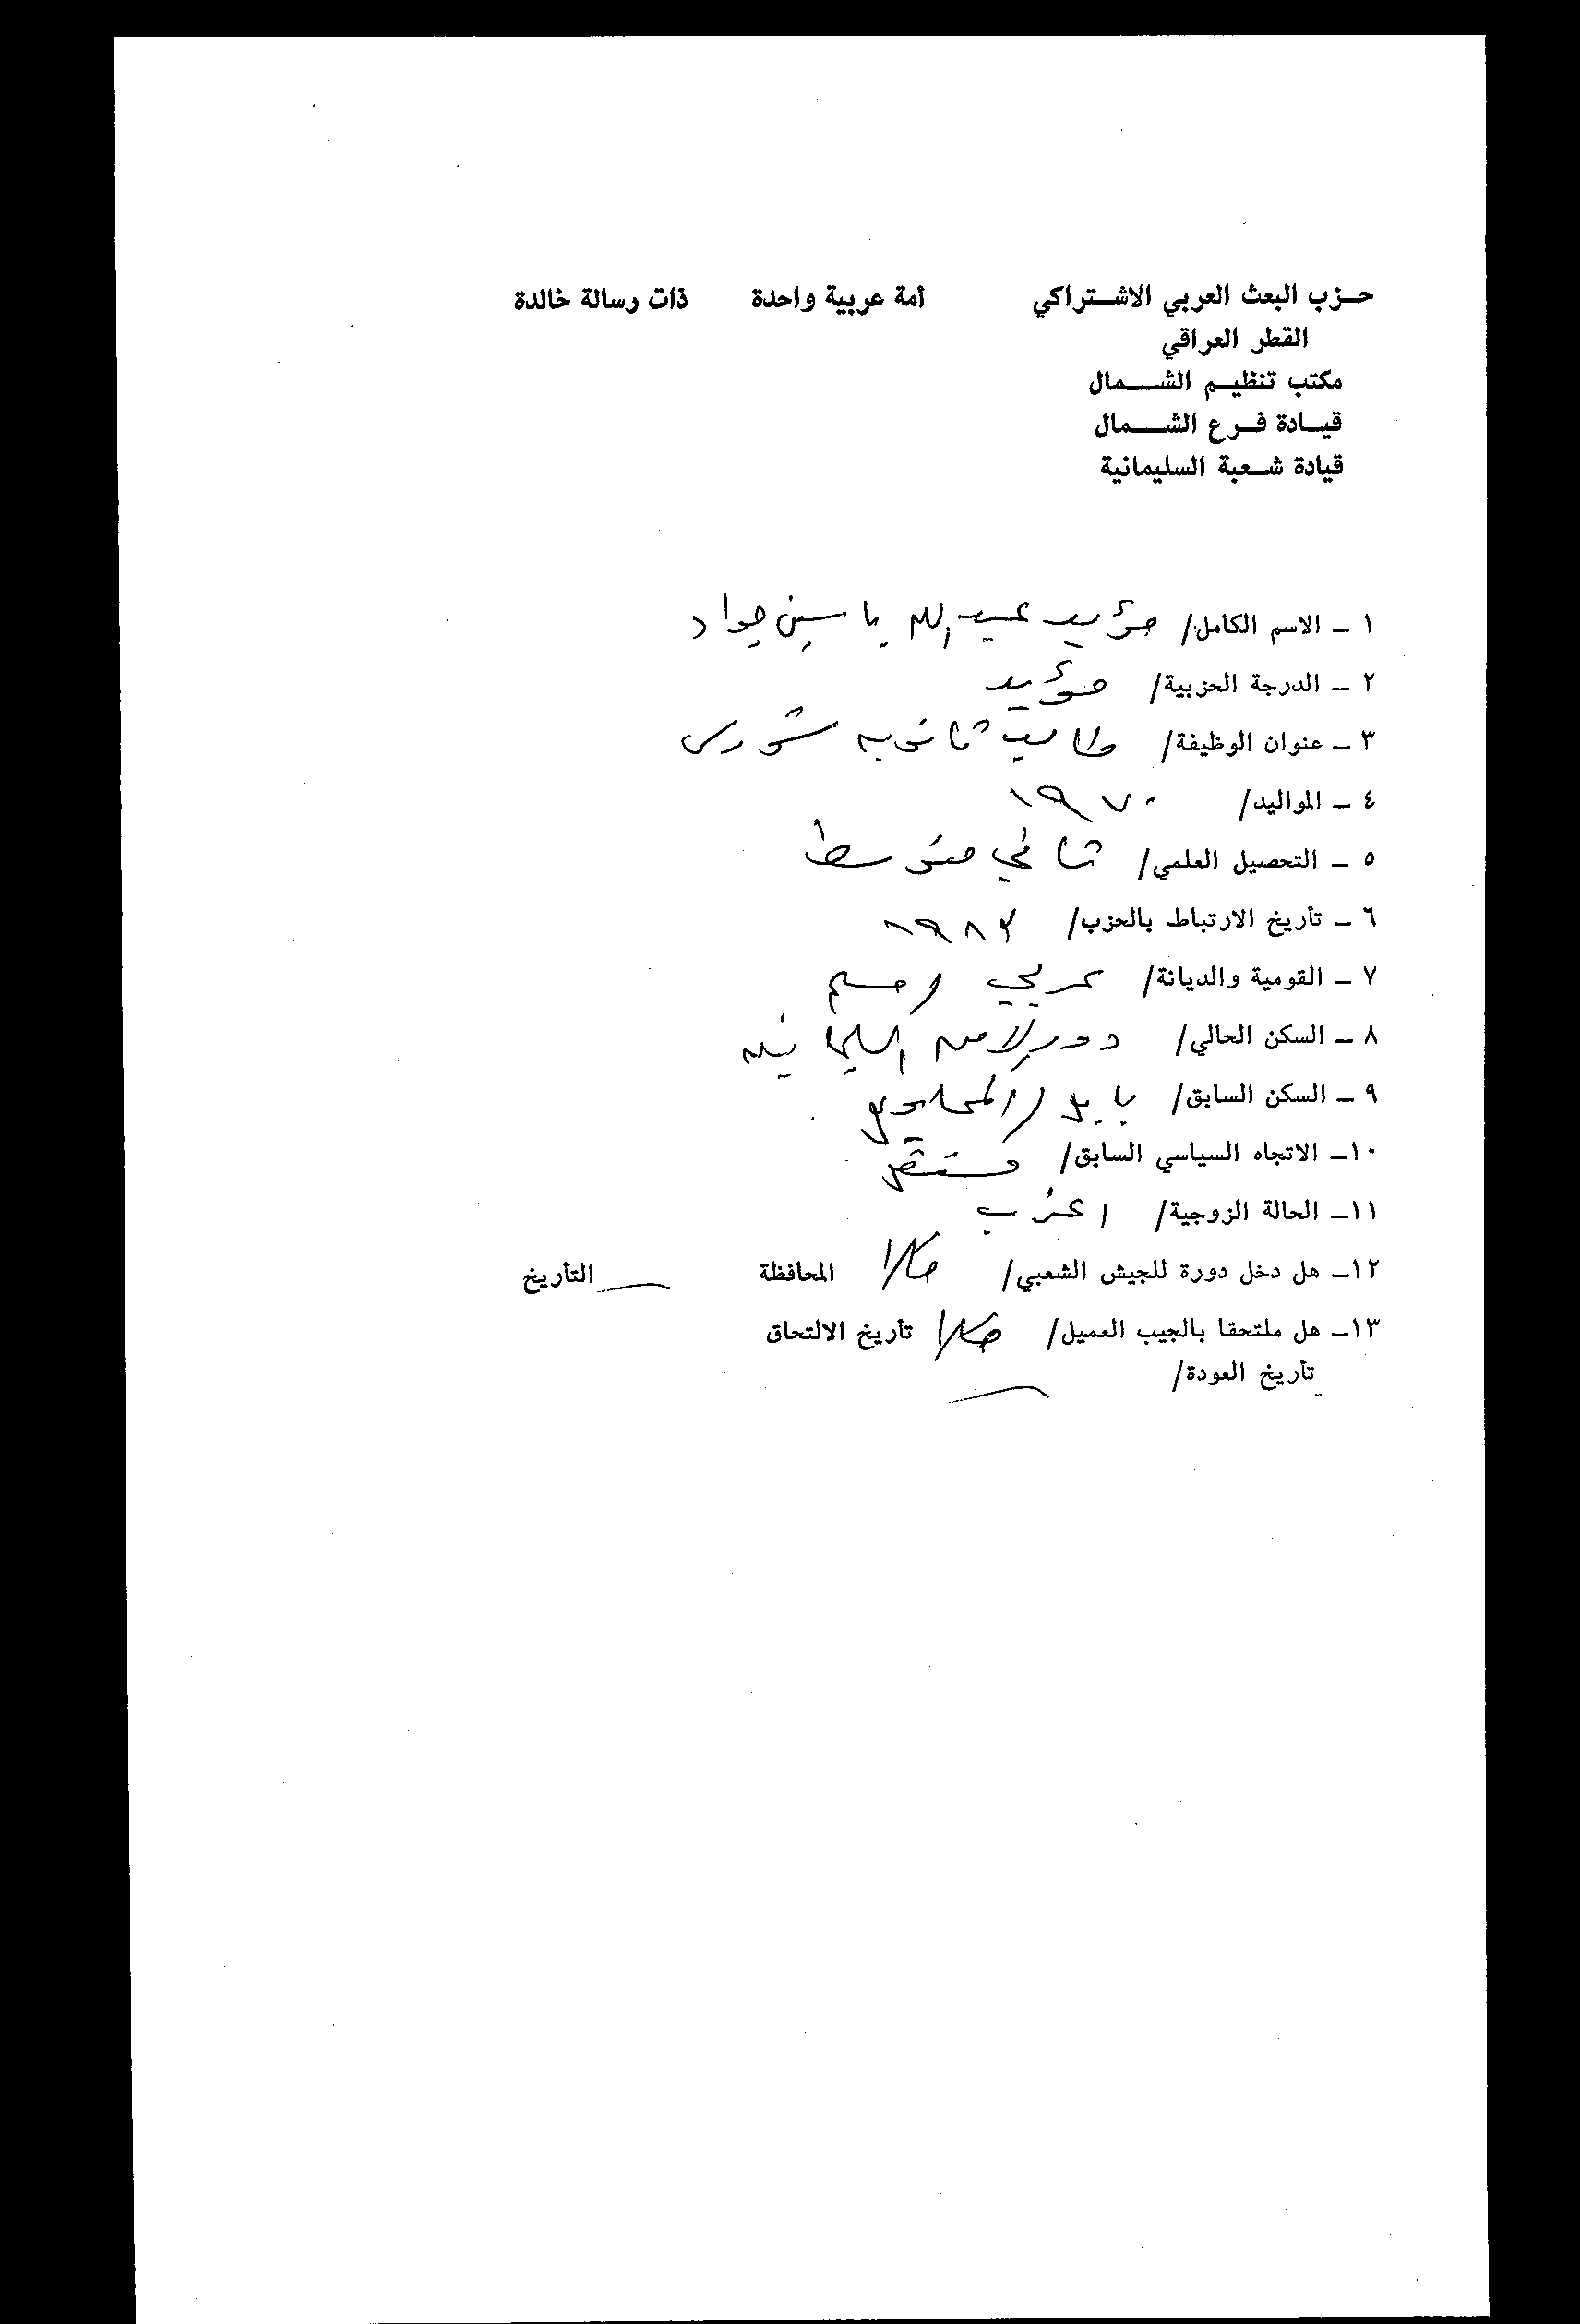 حزب البعث العربي الاشتراكي أمة عربية واحدة ذات رسالة خالدة
القطر العراقي
مكتب تنظيم الشمال
قيادة فرع الشمال
قيادة شعبة السليمانية
١ - الاسم الكامل/ مؤيد عبد الله ياسين جواد
٢ - الدرجة الحزبية/ مؤيد
٣ - عنوان الوظيفة/ طالب ثانويه
٤ - المواليد/ ١٩٧٠
٥ - التحصيل العلمي/ ثاني متوسط
٦ - تأريخ الارتباط بالحزب/ ١٩٨٣
٧ - القومية والديانة/ عربي / مسلم
٨ - السكن الحالي/ دور الامن السليمانيه
٩ - السكن السابق/ بابل / المحاويل
١٠- الاتجاه السياسي السابق/ مستقل
١١- الحالة الزوجية/ اعزب
١٢- هل دخل دورة للجيش الشعبي/ كلا المحافظة التأريخ
١٣- هل ملتحقا بالجيب العميل/ كلا تأريخ الالتحاق
تأريخ العودة/